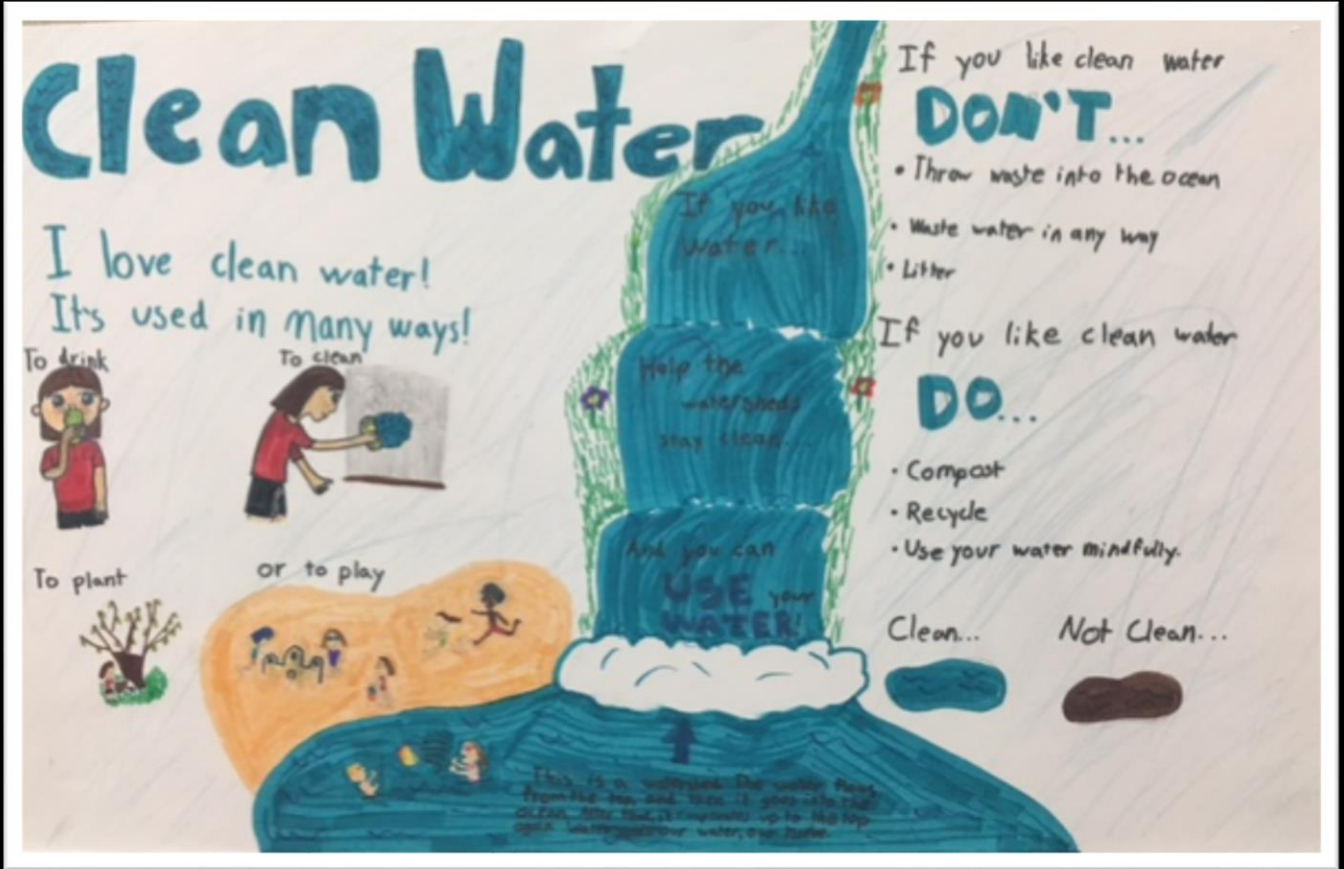 Clean Water
I love clean water!
It's used in many ways!
To drink
To clean
To plant
or to play
If you like
water...
Help the
watersheds
stay clean...
And you can
USE your
WATER!
This is a watershed. The water flows
from the top, and then it goes into the
ocean. After that, it evaporates up to the top
again. our water, our home.
If you like clean water
DON'T...
• Throw waste into the ocean
• Waste water in any way
• Litter
If you like clean water
DO...
• Compost
• Recycle
• Use your water mindfully.
Clean...
Not Clean...